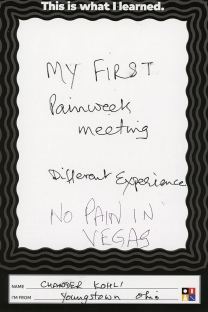 This is what I learned.
MY FIRST
Painweek
meeting
Different Experience
NO PAIN IN
VEGAS
NAME CHANDER KOHLI
I'M FROM Youngstown Ohio